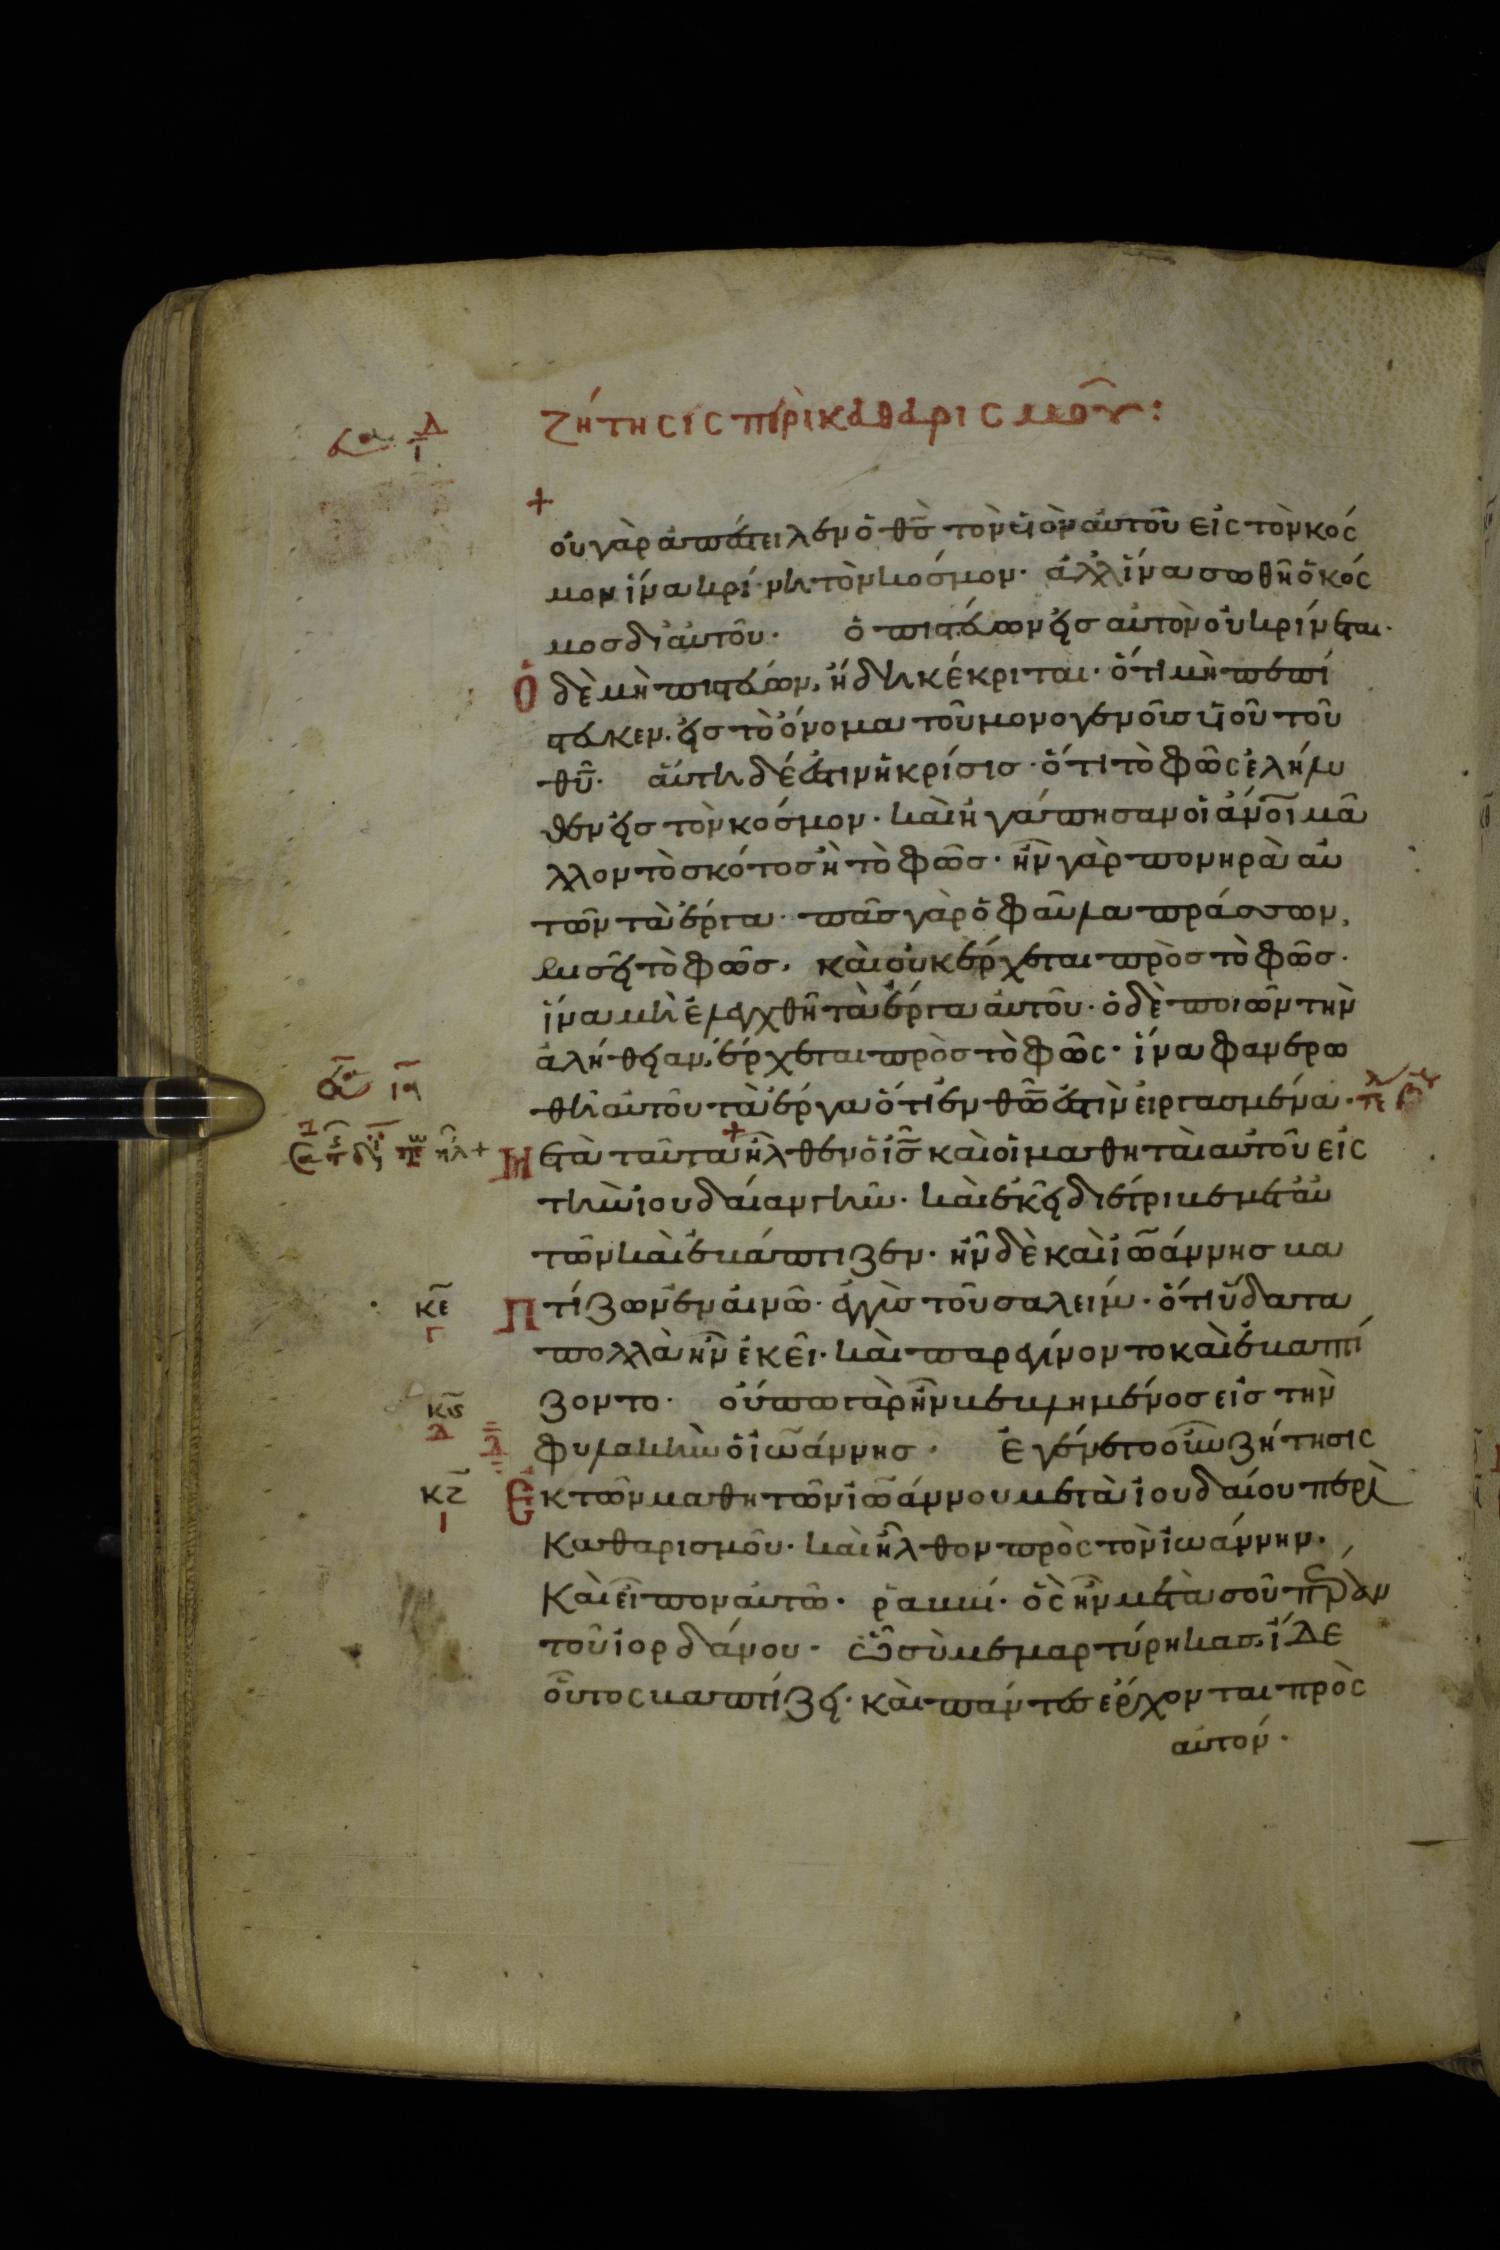 ζήτησις περὶ καθαρισμοῦ:
οὐ γὰρ ἀπέστειλεν ὁ θς̅ τὸν υἱὸν αὐτοῦ εἰς τὸν κόσ
μον ἵνα κρίνη τὸν κόσμον· ἀλλ ἵνα σωθῆ ὁ κόσ
μος δι αὐτοῦ· ὁ πιστεύων εἰς αὐτὸν οὐ κρίνεται·
Ὁ δὲ μὴ πιστεύων, ἤδη κέκριται· ὅτι μὴ πεπί
στευκεν· εἰς τὸ ὄνομα τοῦ μονογενοῦς υἱοῦ τοῦ
θυ̅· αὕτη δέ ἐστιν ἡ κρίσις· ὅτι τὸ φῶς ἐλήλυ
θεν εἰς τὸν κόσμον· καὶ ἠγάπησαν οἱ ἀνοι̅ μᾶ
λλον τὸ σκότος ἢ τὸ φῶς· ἦν γὰρ πονηρὰ αὐ
τῶν τὰ ἔργα· πᾶς γὰρ ὁ φαῦλα πράσσων,
μισεῖ τὸ φῶς, καὶ οὐκ ἔρχεται πρὸς τὸ φῶς·
ἵνα μὴ ἐλεγχθῆ τὰ ἔργα αὐτοῦ· ὁ δὲ ποιῶν τὴν
ἀλήθειαν, ἔρχεται πρὸς τὸ φῶς· ἵνα φανερω
θῆ αὐτοῦ τὰ ἔργα ὅτι ἐν θω̅ ἐστὶν εἰργασμένα·
Μετὰ ταῦτα ἦλθεν ὁ ις̅ καὶ οἱ μαθηταὶ αὐτοῦ εἰς
τὴν ἰουδαίαν γῆν· καὶ ἐκεῖ διέτριβε μετ αὐ
τῶν καὶ ἐβάπτιζεν· ἦν δὲ καὶ ἰωάννης βα
Πτίζων ἐν αἰνῶν· ἐγγὺς τοῦ σαλείμ· ὅτι ὕδατα
πολλὰ ἦν ἐκεῖ· καὶ παρεγίνοντο καὶ ἐβαπτί
ζοντο· οὔπω γὰρ ἦν βεβλημένος εἰς τὴν
φυλακὴν ὁ ἰωάννης· Ἐγένετο οὖν ζήτησις
Ἐκ τῶν μαθητῶν ἰωάννου μετὰ ἰουδαίου περὶ
Καθαρισμοῦ· καὶ ἦλθον πρὸς τὸν ἰωάννην·
Καὶ εἶπον αὐτῶ· ῥαββί· ὃς ἦν μετὰ σοῦ πέραν
τοῦ ἰορδάνου· ὧ σὺ μεμαρτύρηκας· ἴδε
οὗτος βαπτίζει· καὶ πάντες ἔρχονται πρὸς
αὐτόν·
κε̅
γ
κϛ̅
δ
κζ̅
ι